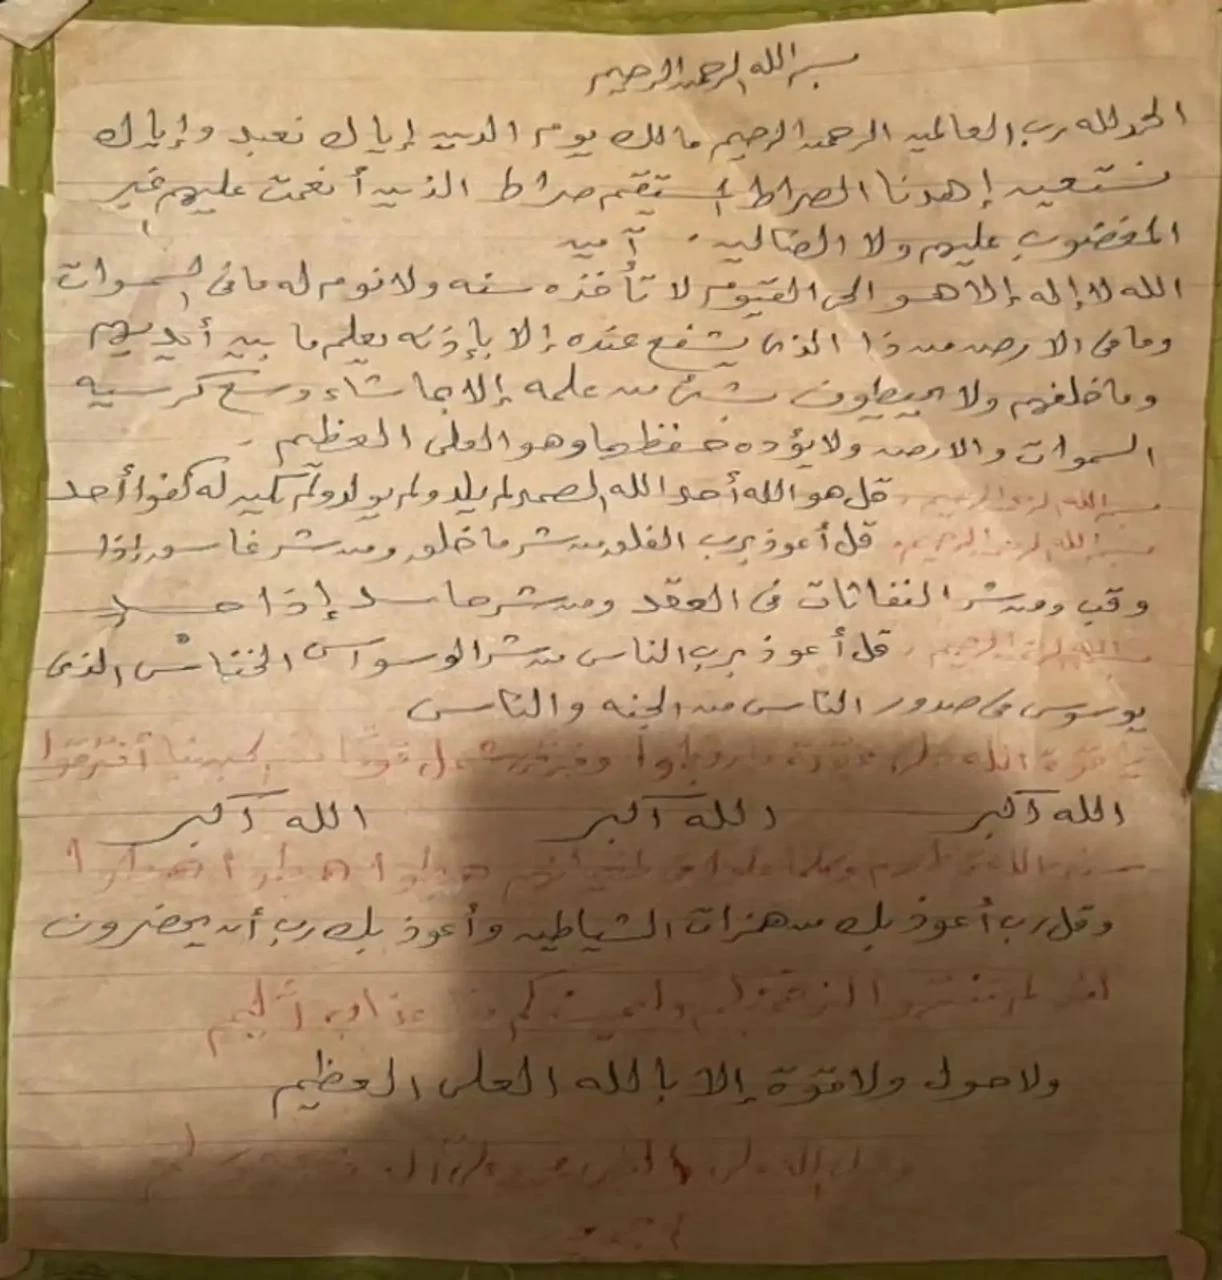 بسم الله الرحمن الرحيم
الحمد لله رب العالمين الرحمن الرحيم مالك يوم الدين إياك نعبد وإياك
نستعين إهدنا الصراط المستقيم صراط الذين أنعمت عليهم غير
المغضوب عليهم ولا الضالين . آمين
الله لا إله إلا هو الحى القيوم لا تأخذه سنه ولا نوم له ما فى السموات
وما فى الارض من ذا الذى يشفع عنده إلا بإذنه يعلم ما بين أيديهم
وما خلفهم ولا يحيطون بشئ من علمه إلا بما شاء وسع كرسيه
السموات والارض ولا يؤده حفظهما وهو العلى العظيم .
بسم الله الرحمن الرحيم . قل هو الله أحد الله الصمد لم يلد ولم يولد ولم يكن له كفوا أحد
بسم الله الرحمن الرحيم . قل أعوذ برب الفلق من شر ما خلق ومن شر غاسق إذا
وقب ومن شر النفاثات فى العقد ومن شر حاسد إذا حسد
بسم الله الرحمن الرحيم . قل أعوذ برب الناس من شر الوسواس الخناس الذى
يوسوس فى صدور الناس من الجنه والناس
الله
الله أكبر الله أكبر الله أكبر
وقل رب أعوذ بك من همزات الشياطين وأعوذ بك رب أن يحضرون
لم عذاب أليم
ولا حول ولا قوة إلا بالله العلى العظيم